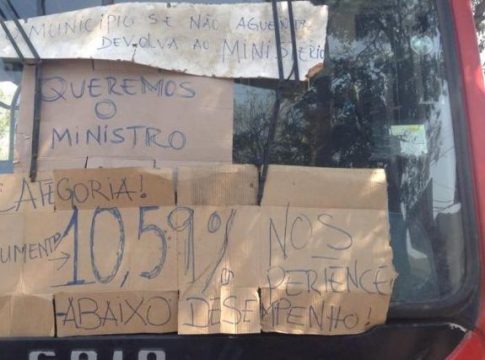 MUNICÍPIO SE NÃO AGUENTA
DEVOLVA AO MINISTÉRIO
QUEREMOS
O
MINISTRO
CATEGORIA!
UMENTO → 10,59% NOS
PERIENCE
ABAIXO DESEMPENHO!